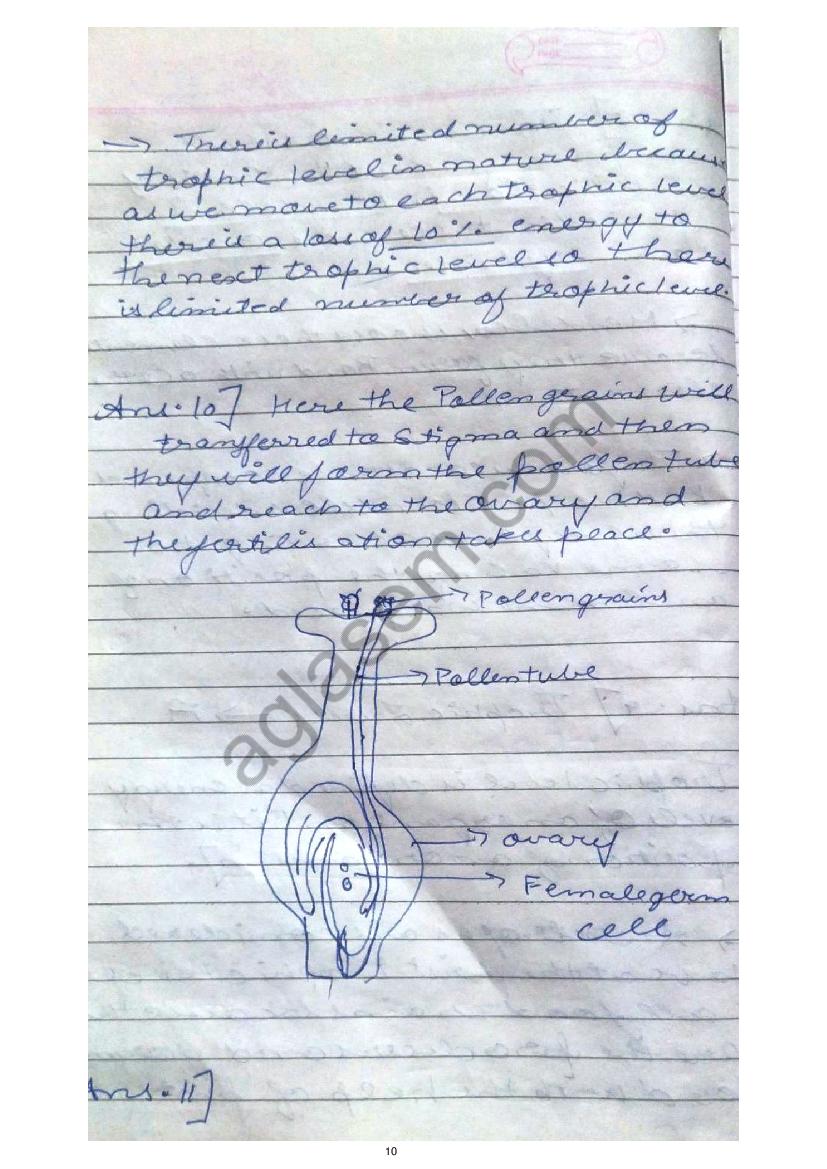 → There is limited number of
trophic level in nature because
as we move to each trophic level
there is a loss of 10% energy to
the next trophic level so there
is limited number of trophic level.
Ans.10] Here the Pollen grains will
transferred to Stigma and then
they will form the pollen tube
and reach to the ovary and
the fertilis ation takes peace.
→ Pollen grains
→ Pollen tube
→ ovary
→ Female germ
cell
Ans.11]
aglasem.com
10